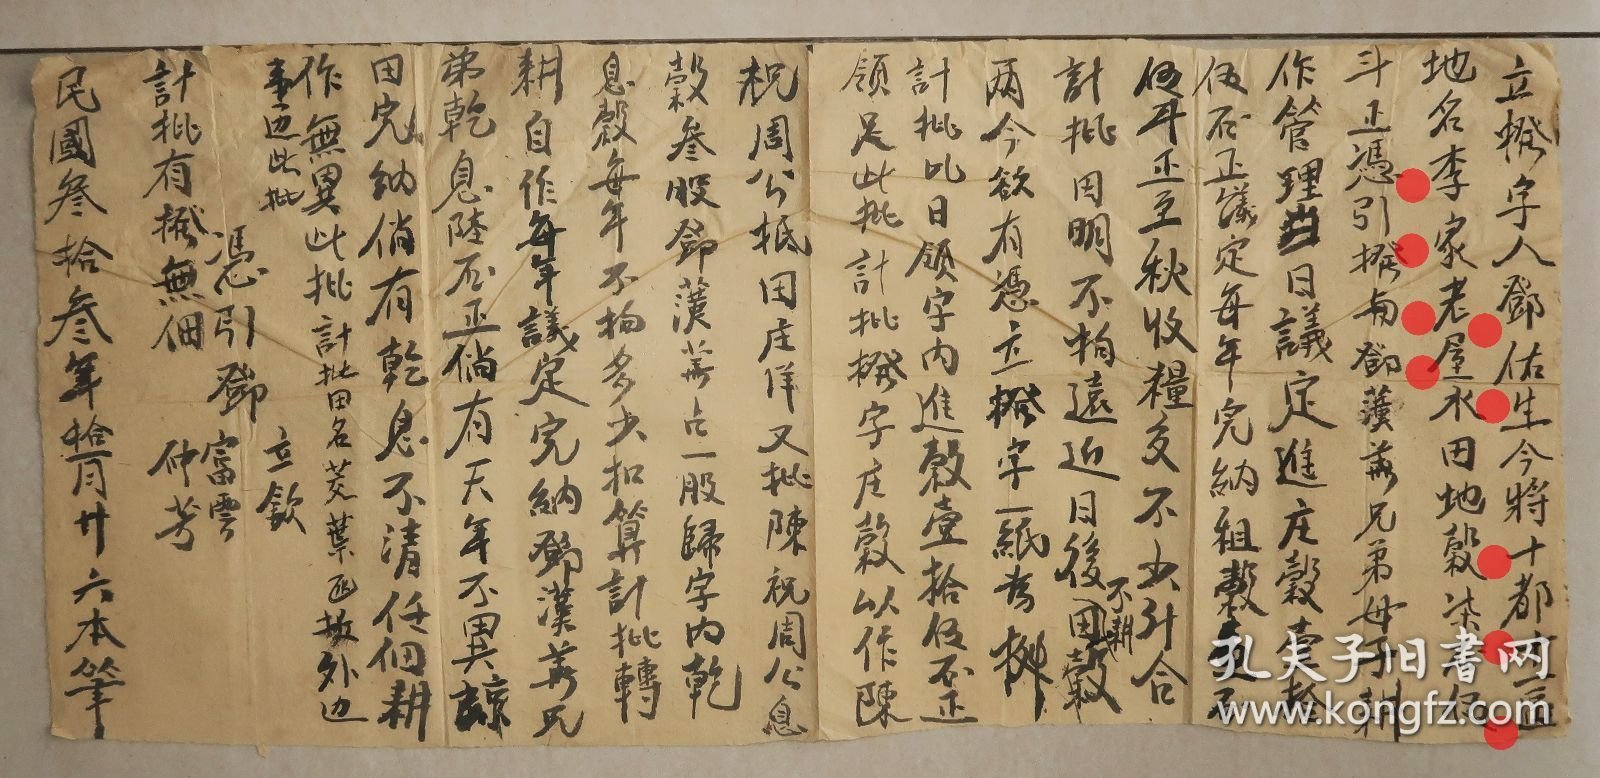 立撥字人鄧佑生今將十都
地名李家老屋水田地穀柒伍
斗正憑引撥与鄧漢蕚兄弟母子耕
作管理當日議定進庄穀壹拾
伍石正議定每年完納租穀
伍斗正至秋收糧交不少引合
計批田明不拘遠近日後不耕田穀
兩今欲有憑立撥字一紙為據
計批比日領字內進穀壹拾伍石正
領足此批計批撥字庄穀以作陳
祝周公抵田庄佯又批陳祝周公息
穀叁股鄧漢蕚占一股歸字內乾
息穀每年不拘多少扣算計批轉
耕自作每年議定完納鄧漢蕚兄
弟乾息陸石正倘有天年不異諒
田完納倘有乾息不清任佃耕
作無異此批計批田名茭葉坵撥外边
边此批
憑引鄧立欽富雲仲芳
計批有撥無佃
民國叁拾叁年拾一月廿六本筆
孔夫子旧书网
www.kongfz.com